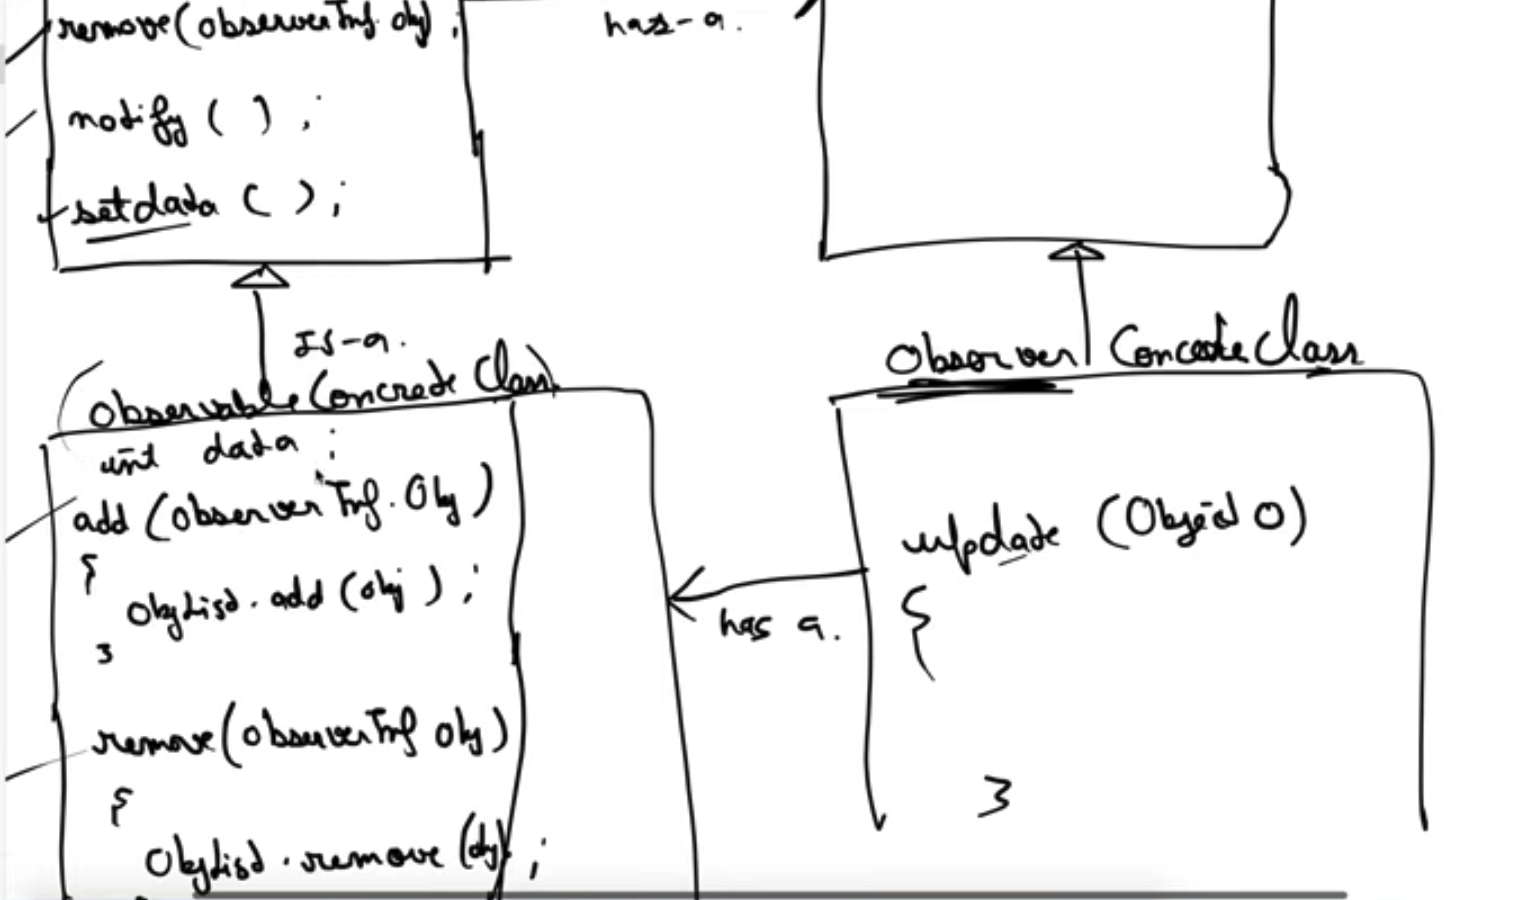 remove(observerInf. obj) ;
has-a.
notify ( ) ;
setdata ( ) ;
Is-a.
(Observable Concrete Class)
int data ;
add (ObserverInf. Obj)
{
ObjList. add (obj) ;
}
remove(observerInf obj)
{
ObjList . remove (obj) ;
has a.
Observer Concrete Class
update (Object O)
{
}